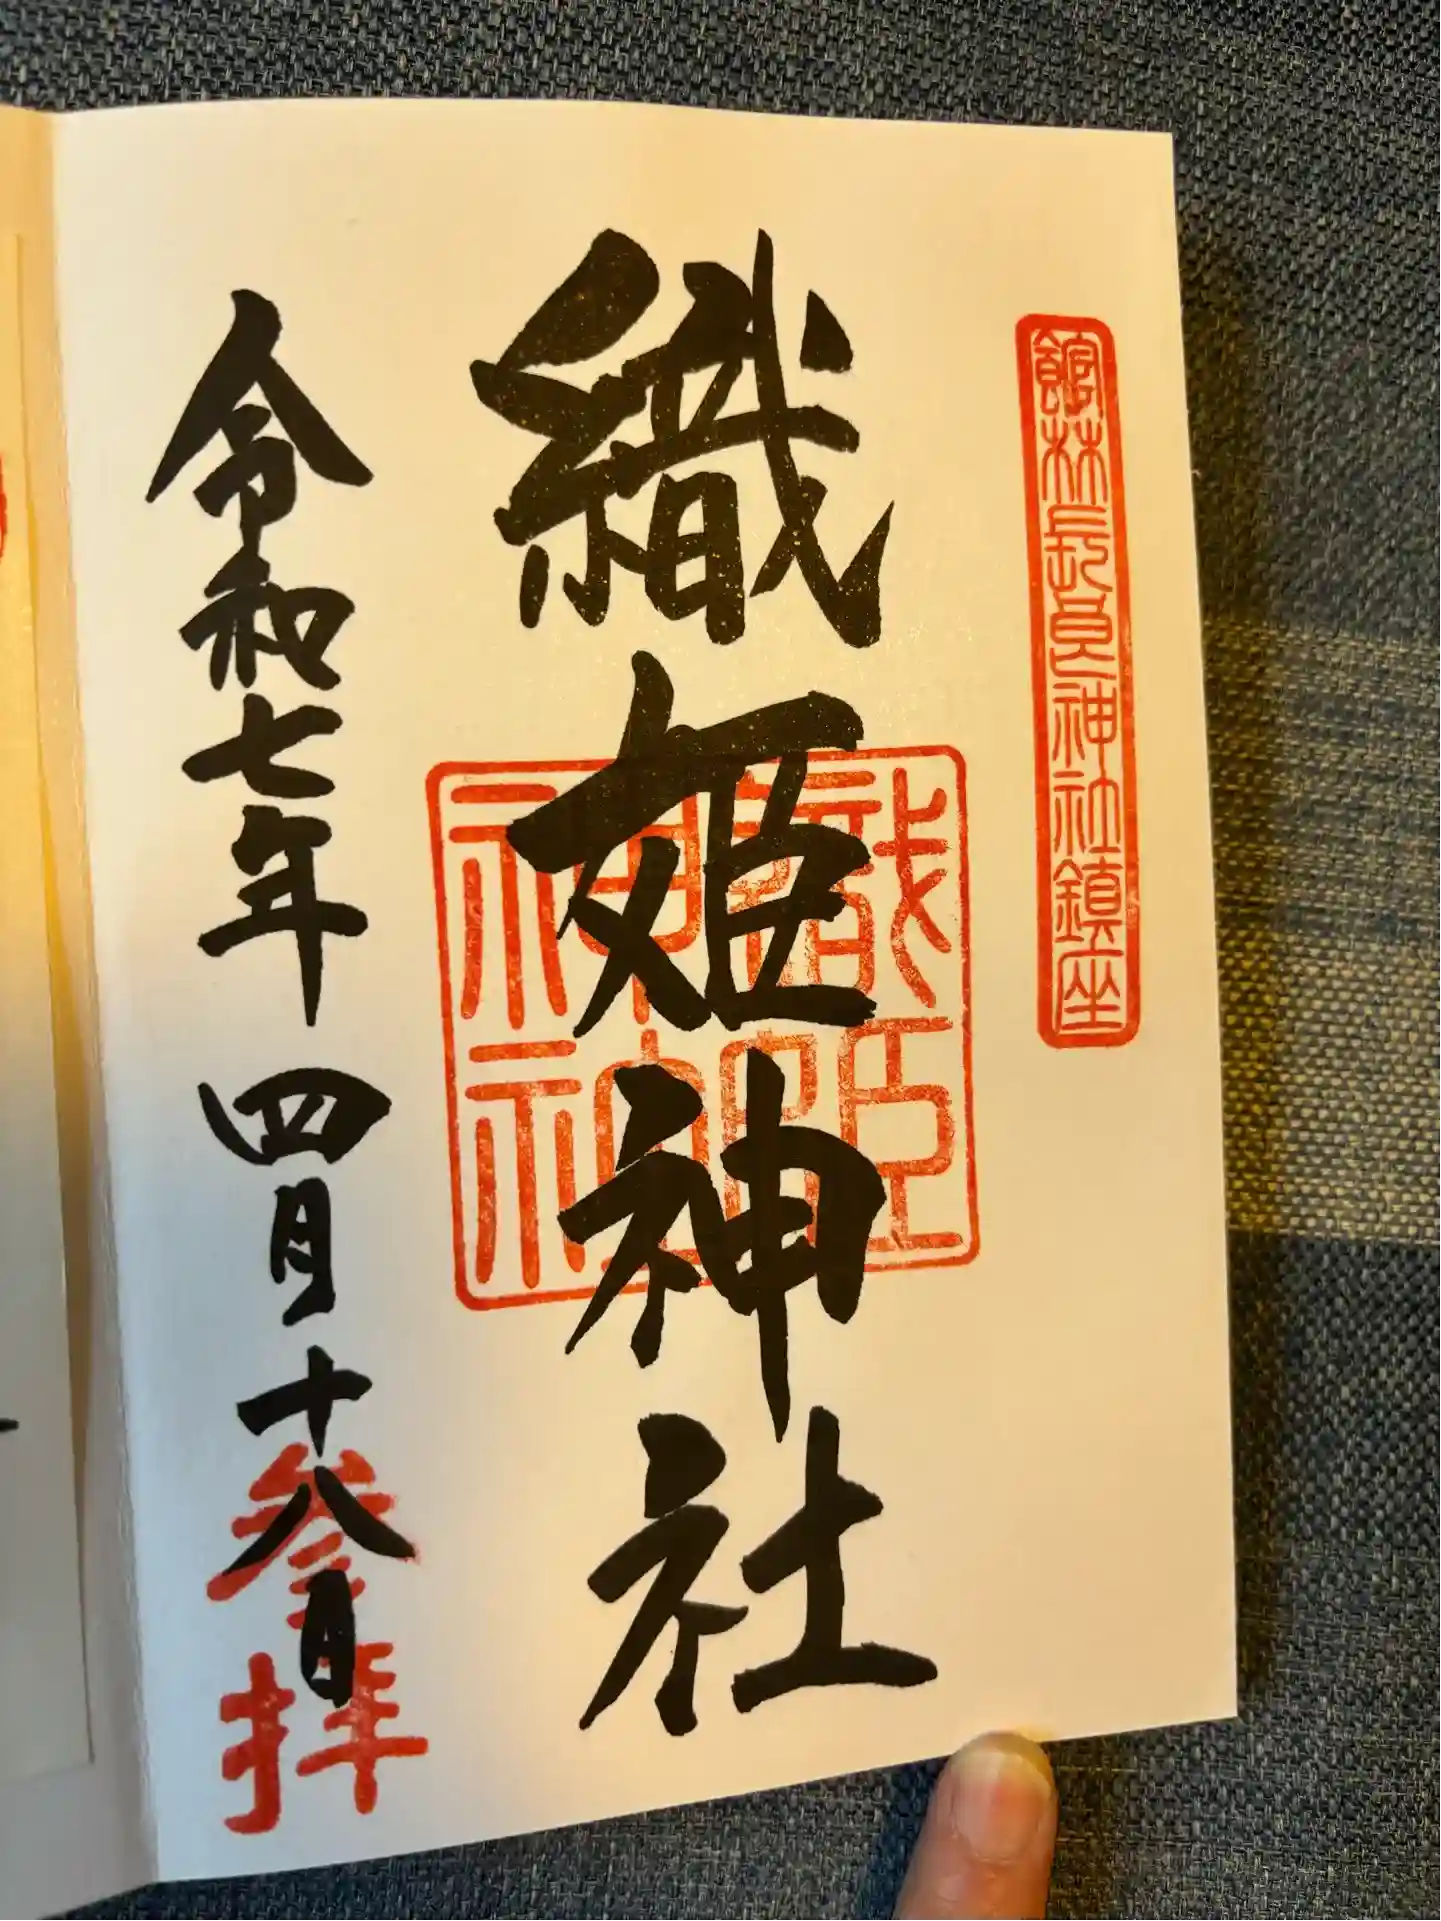 館林長良神社鎮座
織姫神社
織姫
神社
令和七年四月十八日
参拝